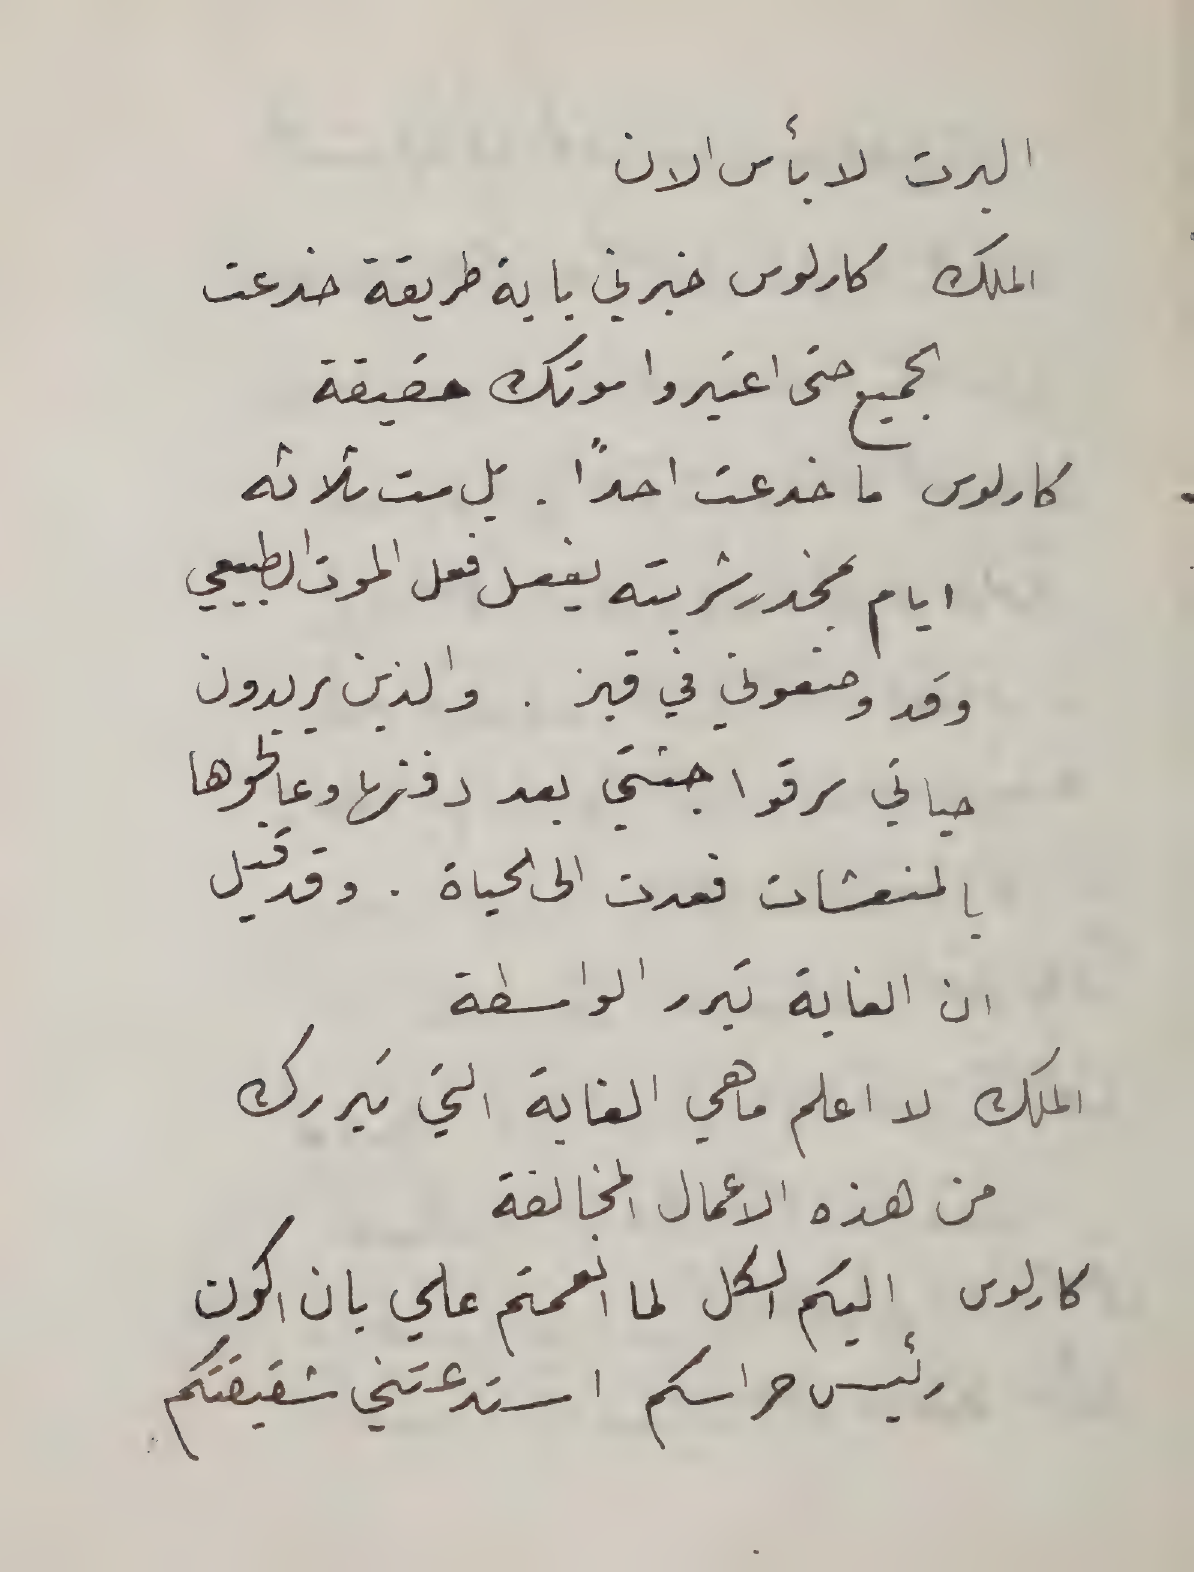 البرت لا بأس الان
الملك كارلوس خبرني باية طريقة خدعت
الجميع حتى اعتبروا موتك حقيقة
كارلوس ما خدعت احدًا . بل مت ثلاثه
ايام بمخدر شربته يفعل فعل الموت الطبيعي
وقد وضعوني في قبر . والذين يريدون
حياتي سرقوا جثتي بعد دفنها وعالجوها
بالمنعشات فعدت الى الحياة . وقد قيل
ان الغاية تبرر الواسطة
الملك لا اعلم ما هي الغاية التي تبررك
من هذه الاعمال المخالفة
كارلوس اليكم الكل لما انعمتم علي بان اكون
رئيس حراسكم استدعتني شقيقتكم